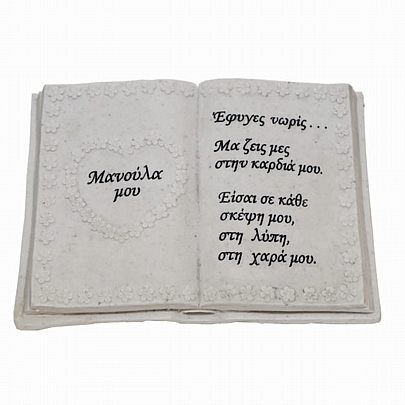 Μανούλα
μου
Έφυγες νωρίς...
Μα ζεις μες
στην καρδιά μου.
Είσαι σε κάθε
σκέψη μου,
στη λύπη,
στη χαρά μου.